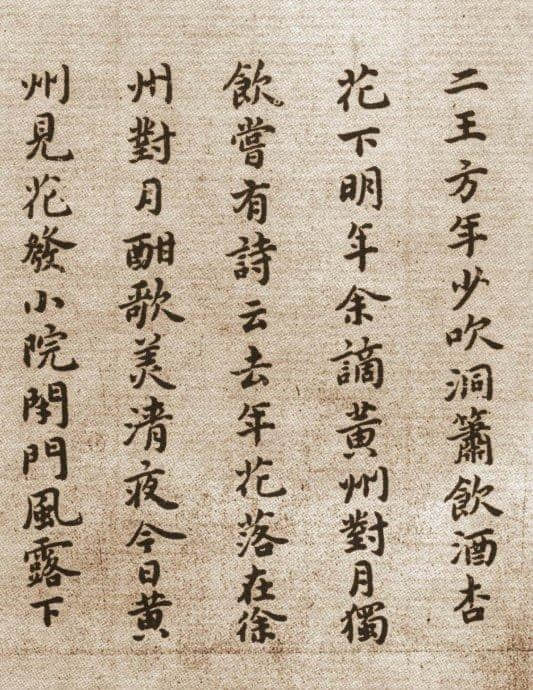 二王方年少吹洞簫飲酒杏
花下明年余謫黃州對月獨
飲嘗有詩云去年花落在徐
州對月酣歌美清夜今日黃
州見花發小院閉門風露下